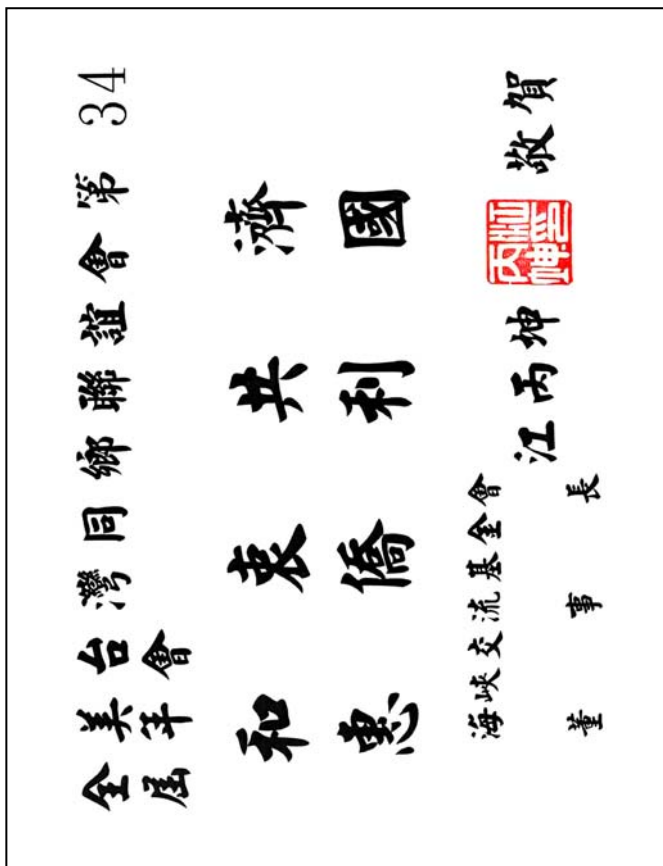 全美台灣同鄉聯誼會第 34
屆年會
和衷共濟
惠僑利國
海峽交流基金會
董事長
江丙坤 敬賀
江丙坤印